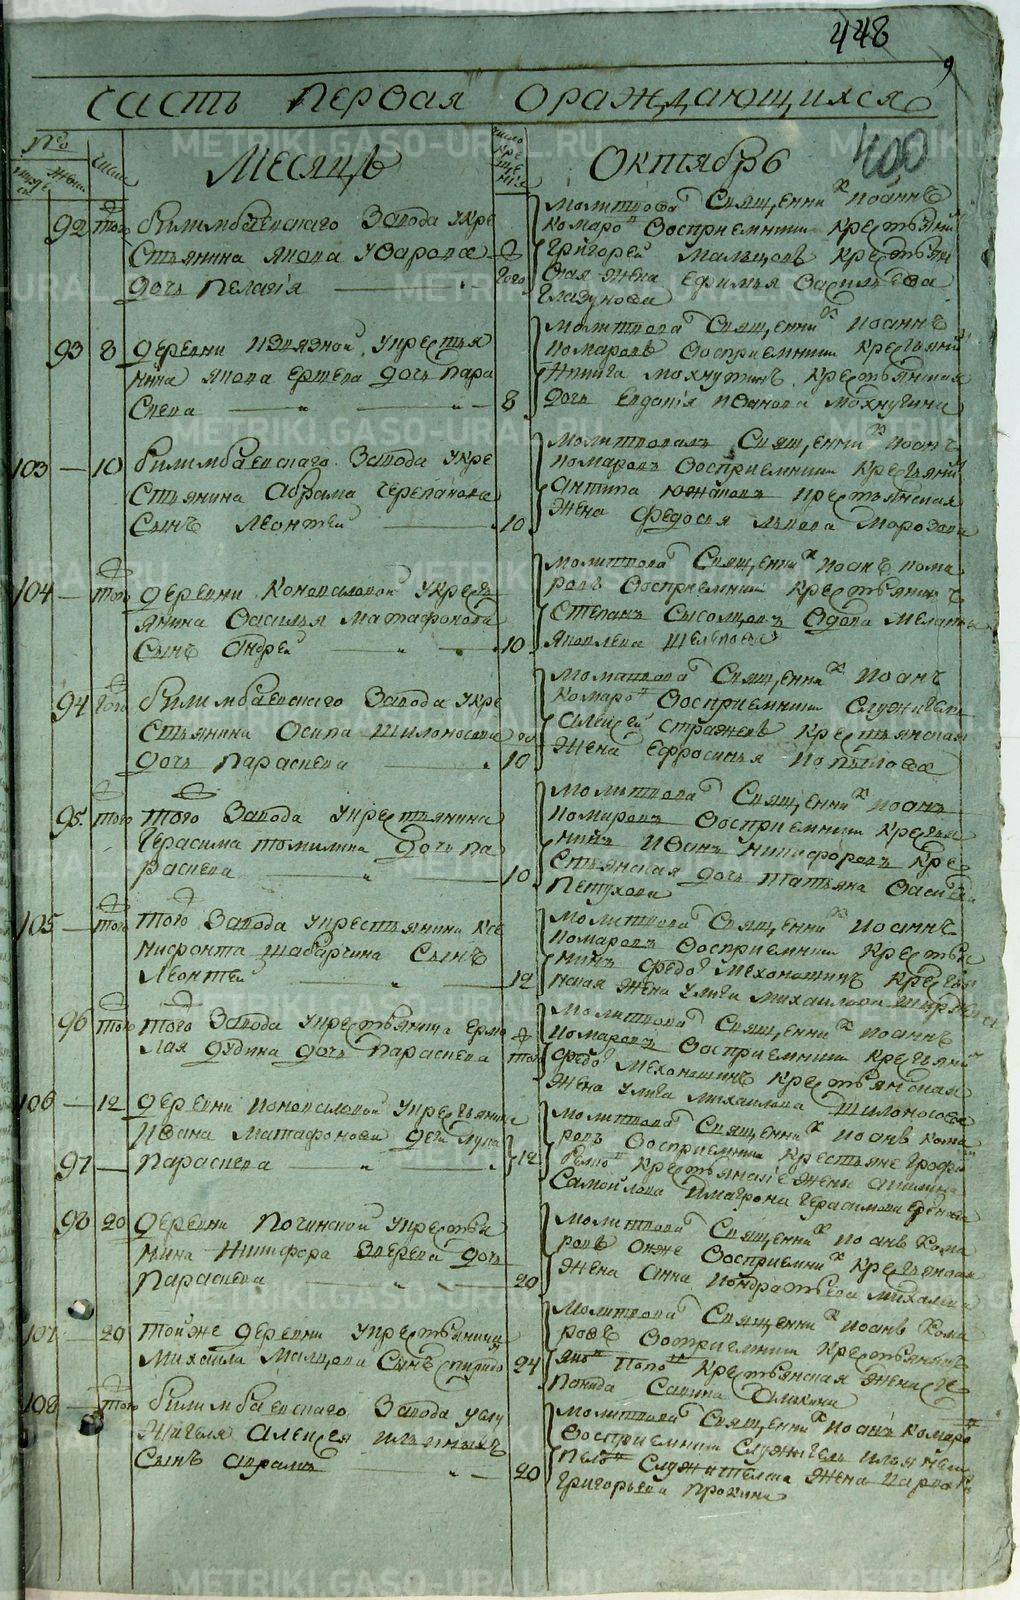 448
9
Часть первая ораждающихся
400
№
числа
мужес
женс
Месяцъ
число кре ще нiя
Октябрь
92 того Билимбаевскаго Завода укре
стьянина Якова Уварова
дочь Пелагiя того
молитвова Священникъ Иоаннъ
Комаро Восприемники крестьянинъ
Григорей Мальцовъ крестьян
ская жена Ефимья Васильева
Гладунова
93 8 деревни Извязной укрестья
нина Якова Ершева дочь Пара
скева 8
молитвова Священникъ Иоаннъ
Комаровъ Восприемники крестьянинъ
Никита Мохнуткинъ крестьянская
дочь Евдокiя Иванова Мохнуткина
103 10 Билимбаевскаго Завода укре
стьянина Абрама Черепанова
сынъ Леонтей 10
молитвовалъ Священникъ Иоанъ
Комаровъ Восприемники крестьянинъ
Антипа Южаковъ крестьянская
жена Федосья Львова Морозова
104 того деревни Коноваловой укресть
янина Василья Матафонова
сынъ Андрей 10
молитвова Священникъ Иоанъ Кома
ровъ Восприемники крестьянинъ
Степанъ Сысолцовъ вдова Меланья
Яковлева
94 того Билимбаевскаго Завода укре
стьянина Осипа Шилоносова
дочь Параскева 10
Молитвова Священникъ Иоанъ
Комаро Восприемники служитель
Алексей Стражевъ крестьянская
жена Ефросинья Копылова
95 того того Завода укрестьянина
Герасима Томилина дочь Па
раскева 10
Молитвова Священникъ Иоанъ
Комаровъ Восприемники крестья
нинъ Иванъ Никифоровъ кре
стьянская дочь Татьяна Васильева
Петухова
105 того того Завода укрестьянина Ксе
нофонта Шабарчина сынъ
Леонтей 12
Молитвова Священникъ Иоаннъ
Комаровъ Восприемники крестья
нинъ Федо Механошинъ крестьян
ская жена Улита Михайлова
96 того того Завода укрестьянина Ермо
лая Дудина дочь Параскева того
Молитвова Священникъ Иоаннъ
Комаровъ Восприемники крестьянинъ
Федо Механошинъ крестьянская
жена Улита Михайлова Шилоносова
106 12 деревни Коновалой укрестьянина
Ивана Матафонова дети Лука
97 Параскева 12
Молитвова Священникъ Иоанъ Кома
ровъ Восприемники крестьяне
крестьянскiе жены
Самойлова Иматрона Герасимова
98 20 деревни Починской укрестья
нина Никифора Зверева дочь
Параскева 20
Молитвова Священникъ Иоанъ Кома
ровъ онже Восприемникъ крестьянская
жена Анна Кондратьева Михалева
107 20 тойже деревни укрестьянина
Михаила Малцова сынъ Спиридо 24
Молитвова Священникъ Иоанъ Кома
ровъ Восприемники крестьянинъ
Попо крестьянская жена Ге
Савина
108 того Билимбаевскаго Завода услу
жителя Алексея Ильиныхъ
сынъ Аврамъ 20
Молитвова Священникъ Иоанъ Комаро
Восприемники служитель Илья
служителска жена
Григорьева